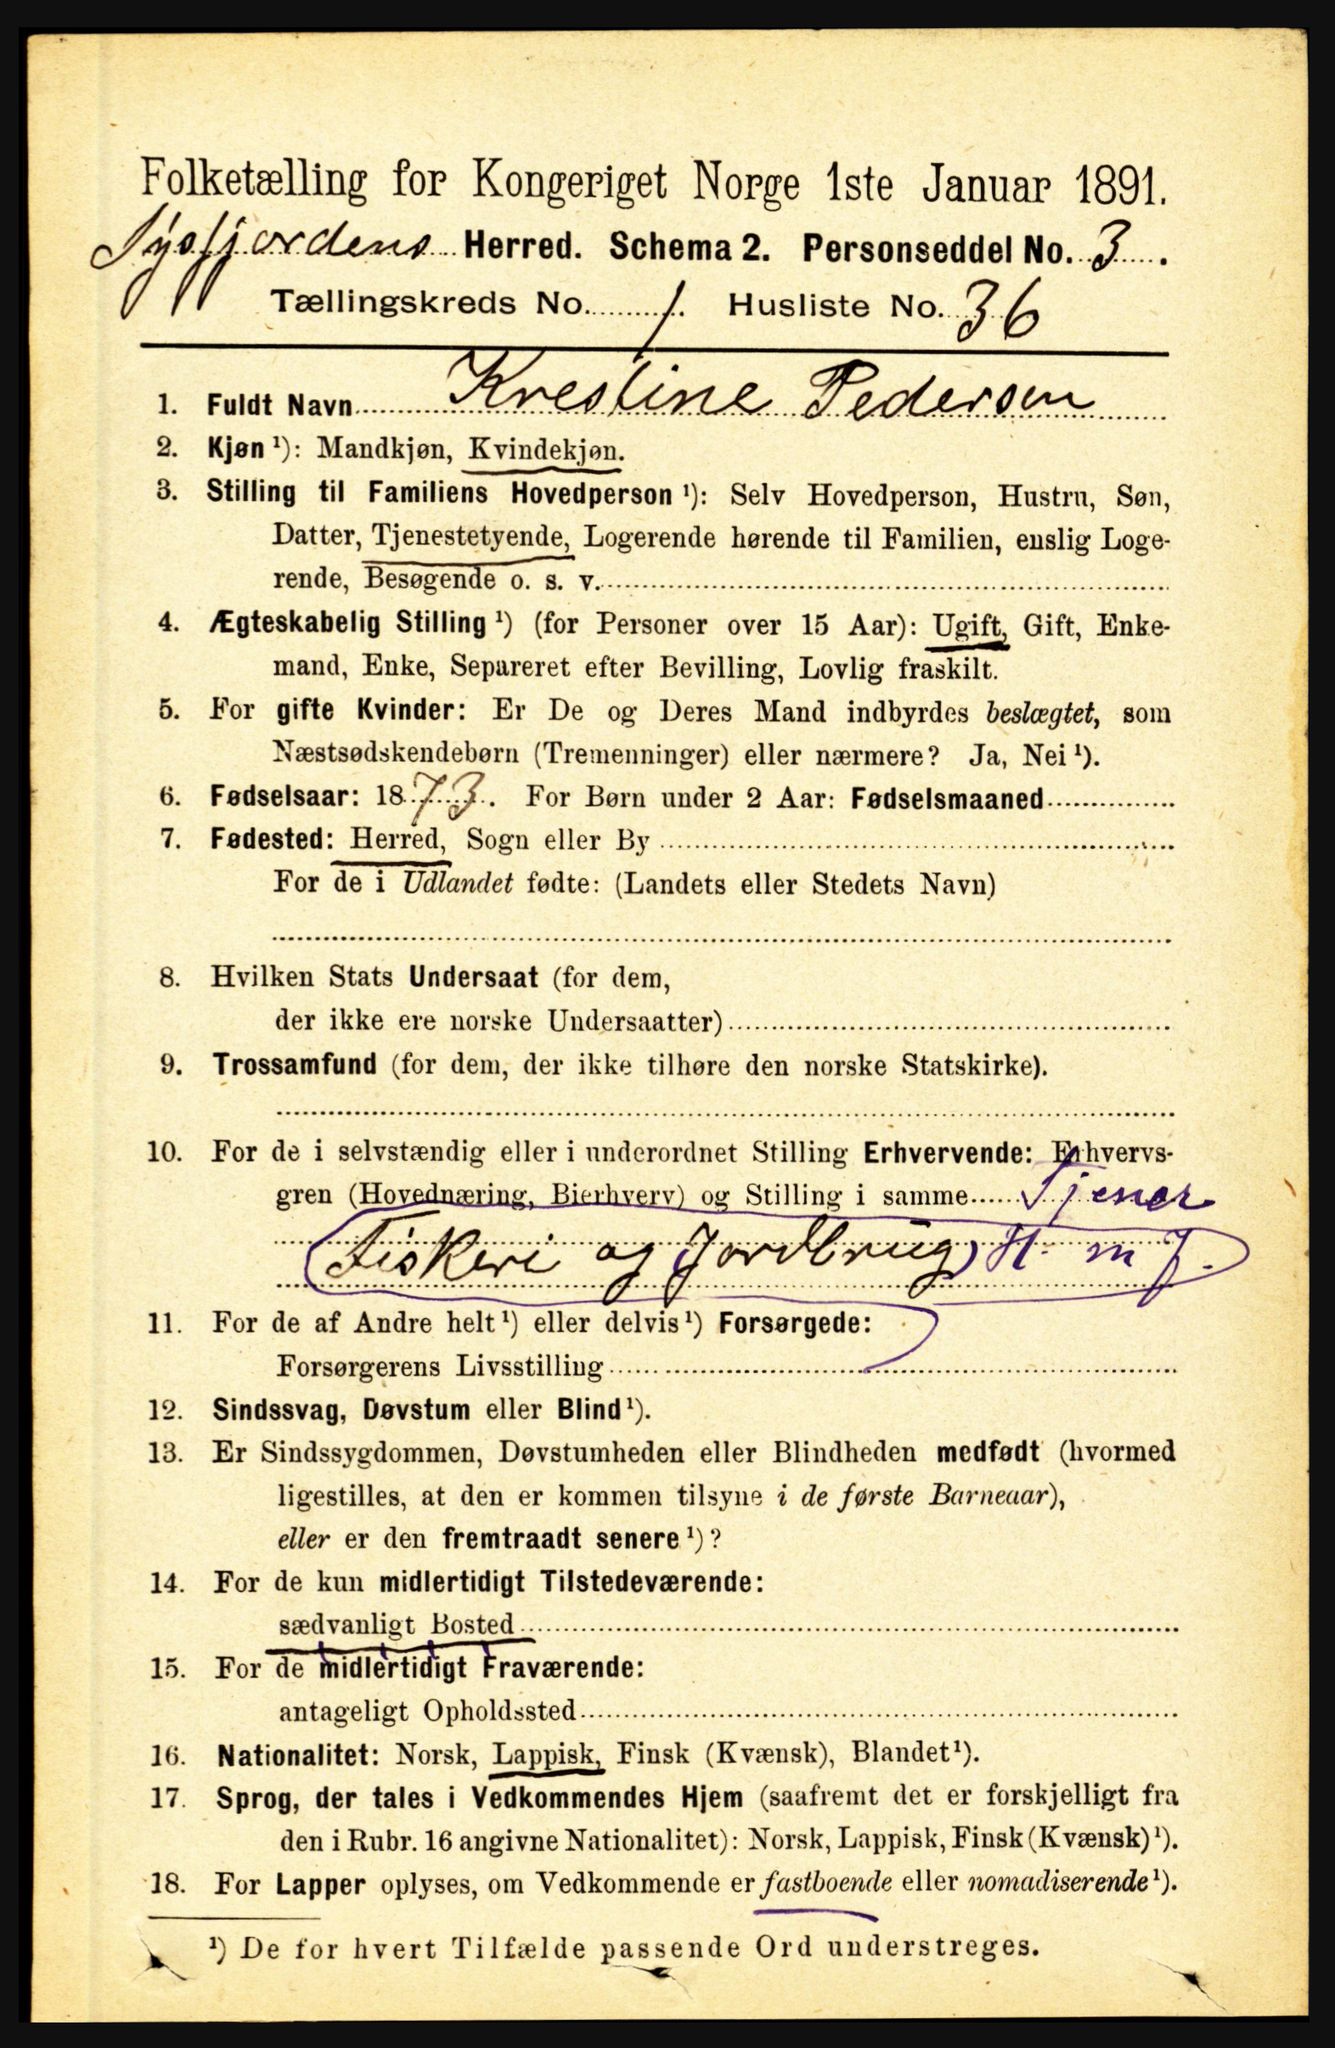 Folketælling for Kongeriget Norge 1ste Januar 1891.
Tysfjordens Herred. Schema 2. Personseddel No. 3.
Tællingskreds No. 1. Husliste No. 36
1. Fuldt Navn Krestine Pedersen
2. Kjøn ¹): Mandkjøn, Kvindekjøn.
3. Stilling til Familiens Hovedperson ¹): Selv Hovedperson, Hustru, Søn,
Datter, Tjenestetyende, Logerende hørende til Familien, enslig Loge-
rende, Besøgende o. s. v.
4. Ægteskabelig Stilling ¹) (for Personer over 15 Aar): Ugift, Gift, Enke-
mand, Enke, Separeret efter Bevilling, Lovlig fraskilt.
5. For gifte Kvinder: Er De og Deres Mand indbyrdes beslægtet, som
Næstsødskendebørn (Tremenninger) eller nærmere? Ja, Nei ¹).
6. Fødselsaar: 1873. For Børn under 2 Aar: Fødselsmaaned
7. Fødested: Herred, Sogn eller By
For de i Udlandet fødte: (Landets eller Stedets Navn)
8. Hvilken Stats Undersaat (for dem,
der ikke ere norske Undersaatter)
9. Trossamfund (for dem, der ikke tilhøre den norske Statskirke).
10. For de i selvstændig eller i underordnet Stilling Erhvervende: Erhvervs-
gren (Hovednæring, Bierhverv) og Stilling i samme Tjener
Fiskeri og Jordbrug) H. m J.
11. For de af Andre helt ¹) eller delvis ¹) Forsørgede:
Forsørgerens Livsstilling
12. Sindssvag, Døvstum eller Blind ¹).
13. Er Sindssygdommen, Døvstumheden eller Blindheden medfødt (hvormed
ligestilles, at den er kommen tilsyne i de første Barneaar),
eller er den fremtraadt senere ¹)?
14. For de kun midlertidigt Tilstedeværende:
sædvanligt Bosted
15. For de midlertidigt Fraværende:
antageligt Opholdssted
16. Nationalitet: Norsk, Lappisk, Finsk (Kvænsk), Blandet ¹).
17. Sprog, der tales i Vedkommendes Hjem (saafremt det er forskjelligt fra
den i Rubr. 16 angivne Nationalitet): Norsk, Lappisk, Finsk (Kvænsk) ¹).
18. For Lapper oplyses, om Vedkommende er fastboende eller nomadiserende ¹).
¹) De for hvert Tilfælde passende Ord understreges.